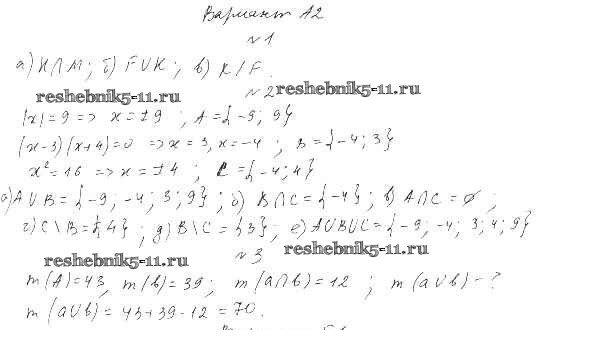 Вариант А2
№1
а) К∩М; б) F∪К; в) К/F.
reshebnik5-11.ru
№2
reshebnik5-11.ru
|x|=9 => x=±9 ; A={-9; 9}
(x-3)(x+4)=0 => x=3, x=-4 ; B={-4; 3}
x²=16 => x=±4 ; C={-4; 4}
а) A∪B={-9; -4; 3; 9} ; б) B∩C={-4} ; в) A∩C=∅ ;
г) C\B={4} ; д) B\C={3} ; е) A∪B∪C={-9; -4; 3; 4; 9}
reshebnik5-11.ru
№3
reshebnik5-11.ru
m(A)=43, m(b)=39; m(a∩b)=12 ; m(a∪b)-?
m(a∪b)=43+39-12=70.